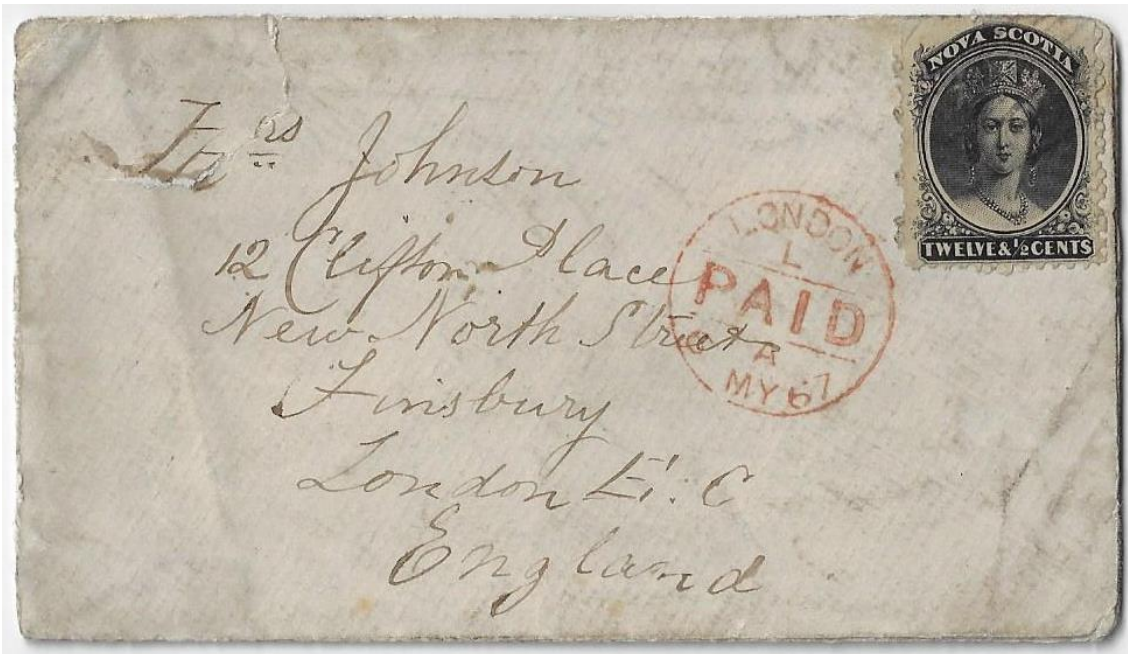 NOVA SCOTIA
TWELVE & ½ CENTS
Mrs Johnson
12 Clifton Place
New North Street
Finsbury
London E. C
England
LONDON
L
PAID
A
MY 67